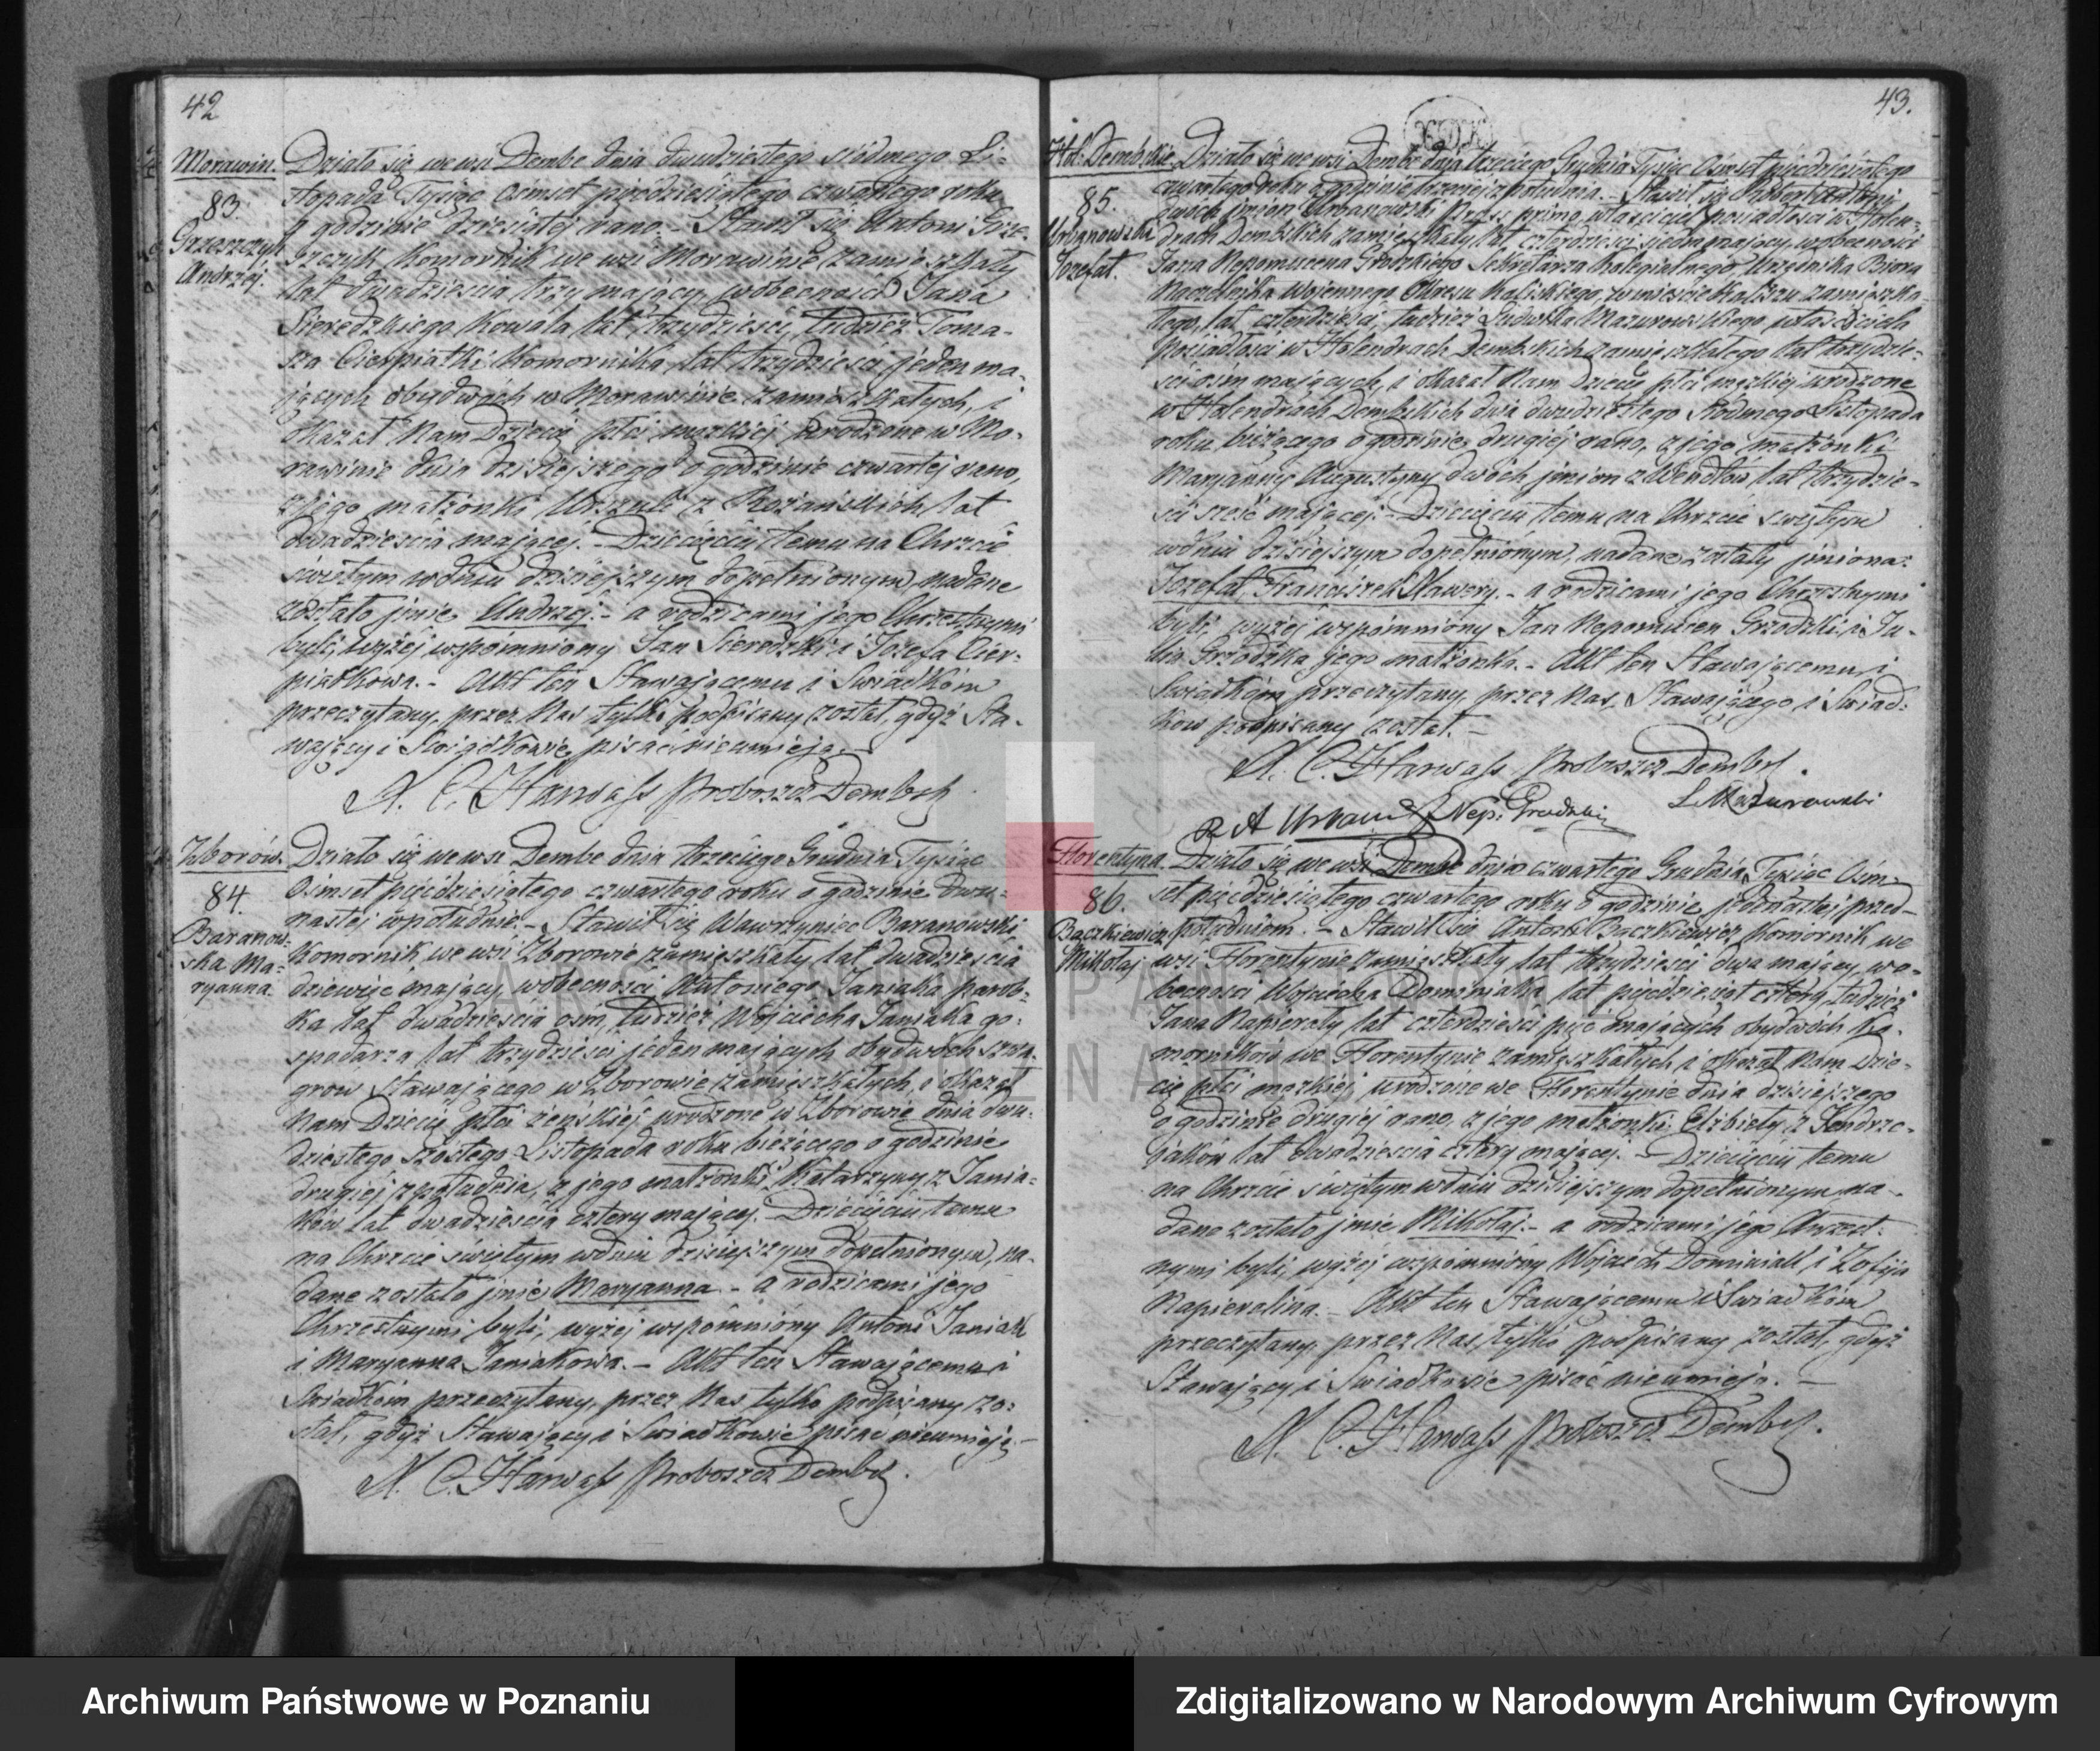 42
Morawin.
83.
Grzesczyk
Andrzej.
Działo się we wsi Dembe dnia dwudziestego siódmego Li-
stopada Tysiąc Ośmset pięćdziesiątego czwartego roku
o godzinie dziesiątej rano. - Stawił się Antoni Grze-
szczyk Komornik we wsi Morawinie zamieszkały
lat dwadzieścia trzy mający, wobecności Jana
Sieredzkiego Kowala lat trzydzieści, tudzież Toma-
sza Cierpiatki Komornika lat trzydzieści jeden ma-
jących obydwóch w Morawinie zamieszkałych, i
okazał Nam Dziecię płci męzkiej urodzone w Mo-
rawinie dnia dzisiejszego o godzinie czwartej rano,
z jego małżonki Urszuli z Rożańskich lat
dwadzieścia mającej. - Dziecięciu temu na Chrzcie
świętym w dniu dzisiejszym dopełnionym, nadane
zostało jmie Andrzej. - a rodzicami jego Chrzestnymi
byli, wyżej wspomniony Jan Sieredzki i Józefa Cier-
piatkowa. - Akt ten Stawającemu i Świadkom
przeczytany, przez Nas tylko podpisany został, gdyż Sta-
wający i Świadkowie pisać nieumieją. -
X. C. Harwass Proboszcz Dembsk
Zborów.
84.
Baranow-
ska Ma-
ryanna.
Działo się we wsi Dembe dnia trzeciego Grudnia Tysiąc
Ośmset pięćdziesiątego czwartego roku o godzinie dwu-
nastej w południe. - Stawił się Wawrzyniec Baranowski
Komornik we wsi Zborowie zamieszkały lat dwadzieścia
dziewięć mający, wobecności Antoniego Janiaka parob-
ka lat dwadzieścia ośm, tudzież Wojciecha Janiaka go-
spodarza lat trzydzieści jeden mających obydwóch szwa-
grów Stawającego w Zborowie zamieszkałych, i okazał
Nam Dziecię płci żeńskiej urodzone w Zborowie dnia dwu-
dziestego szóstego Listopada roku bieżącego o godzinie
drugiej z południa, z jego małżonki Katarzyny z Jania-
ków lat dwadzieścia cztery mającej. - Dziecięciu temu
na Chrzcie świętym w dniu dzisiejszym dopełnionym, na-
dane zostało jmie Maryanna - a rodzicami jego
Chrzestnymi byli, wyżej wspomniony Antoni Janiak
i Maryanna Janiakowa. - Akt ten Stawającemu i
Świadkom przeczytany, przez Nas tylko podpisany zo-
stał, gdyż Stawający i Świadkowie pisać nieumieją. -
X. C. Harwass Proboszcz Dembsk.
43.
Hol: Dembskie
85.
Urbanowski
Jozefat.
Działo się we wsi Dembe dnia trzeciego Grudnia Tysiąc Ośmset pięćdziesiątego
czwartego roku o godzinie trzeciej z południa. - Stawił się Robert Antoni
dwóch jmion Urbanowski właściciel posiadłości w Holen-
drach Dembskich zamieszkały lat czterdzieści siedm mający, wobecności
Jana Nepomucena Grodzkiego Sekretarza Kolegialnego, Urzędnika Biora
Naczelnika Wojennego Okręgu Kaliskiego, w mieście Kaliszu zamieszka-
łego, lat czterdzieści, tudzież Ludwika Mazurowskiego właściciela
posiadłości w Holendrach Dembskich zamieszkałego lat trzydzie-
ści ośm mających, i okazał Nam Dziecię płci męzkiej urodzone
w Holendrach Dembskich dnia dwudziestego siódmego Listopada
roku bieżącego o godzinie drugiej rano, z jego małżonki
Maryanny Augustyny dwóch jmion z Wendtów lat trzydzie-
ści sześć mającej. - Dziecięciu temu na Chrzcie świętym
w dniu dzisiejszym dopełnionym, nadane zostały jmiona:
Jozefat Franciszek Xawery. - a rodzicami jego Chrzestnymi
byli, wyżej wspomniony Jan Nepomucen Grodzki i Ju-
lia Grodzka jego małżonka. - Akt ten Stawającemu i
Świadkom przeczytany, przez Nas, Stawającego i Świad-
ków podpisany został. -
X. C. Harwass Proboszcz Dembsk.
R A Urban Nep. Grodzki L Mazurowski
Florentyna.
86.
Baczkiewicz
Mikołaj
Działo się we wsi Dembe dnia czwartego Grudnia Tysiąc Ośm-
set pięćdziesiątego czwartego roku o godzinie jedenastej przed-
południem. - Stawił się Antoni Baczkiewicz Komornik we
wsi Florentynie zamieszkały lat trzydzieści dwa mający, wo-
becności Wojciecha Dominiaka lat pięćdziesiąt cztery, tudzież
Jana Napierały lat czterdzieści pięć mających obydwóch Ko-
morników we Florentynie zamieszkałych i okazał Nam Dzie-
cię płci męzkiej urodzone we Florentynie dnia dzisiejszego
o godzinie drugiej rano, z jego małżonki Elżbiety z Jendrze-
jaków lat dwadzieścia cztery mającej. - Dziecięciu temu
na Chrzcie świętym w dniu dzisiejszym dopełnionym na-
dane zostało jmie Mikołaj. - a rodzicami jego Chrzest-
nymi byli, wyżej wspomniony Wojciech Dominiak i Zofija
Napieralina. - Akt ten Stawającemu i Świadkom
przeczytany, przez Nas tylko podpisany został, gdyż
Stawający i Świadkowie pisać nieumieją. -
X. C. Harwass Proboszcz Dembsk.
ARCHIWUM PAŃSTWOWE
W POZNANIU
Archiwum Państwowe w Poznaniu
Zdigitalizowano w Narodowym Archiwum Cyfrowym